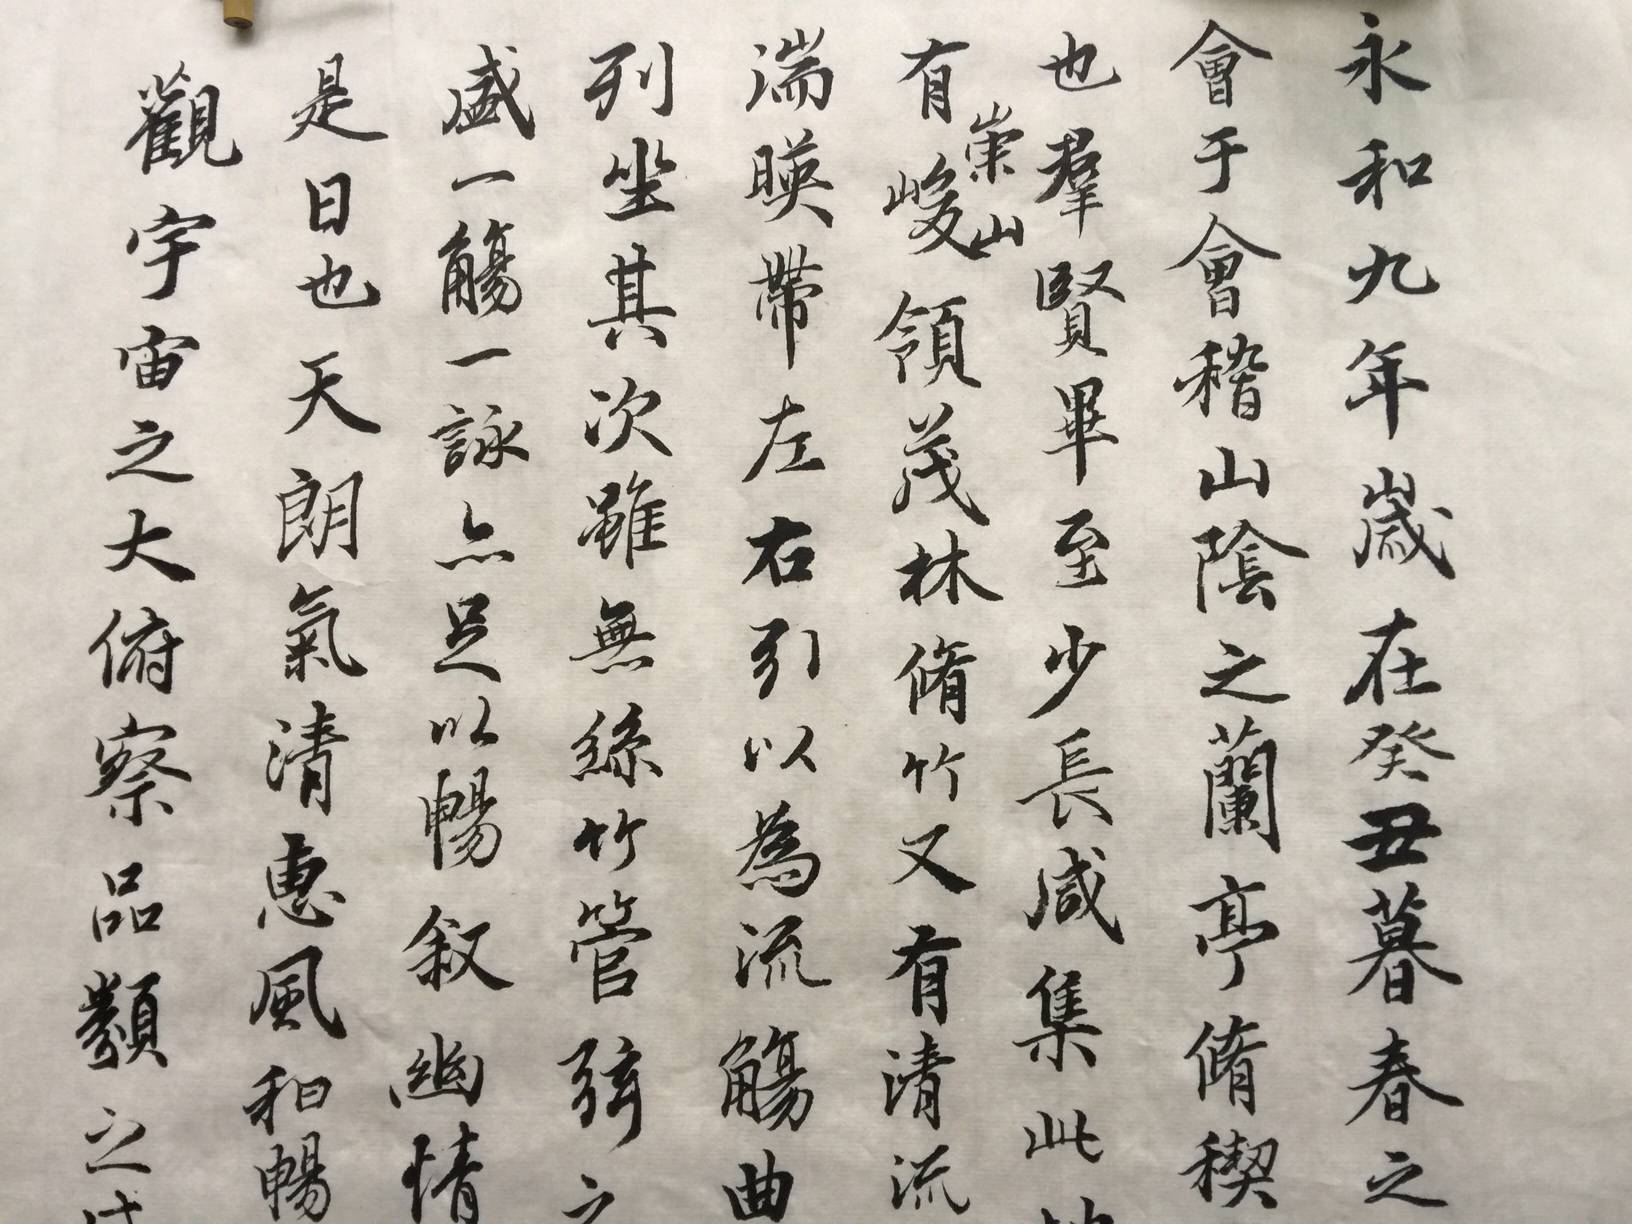 永和九年歲在癸丑暮春之
會于會稽山陰之蘭亭脩稧
也羣賢畢至少長咸集此地
有崇山峻領茂林脩竹又有清流
湍暎帶左右引以為流觴曲
列坐其次雖無絲竹管弦之
盛一觴一詠亦足以暢敘幽情
是日也天朗氣清惠風和暢
觀宇宙之大俯察品類之